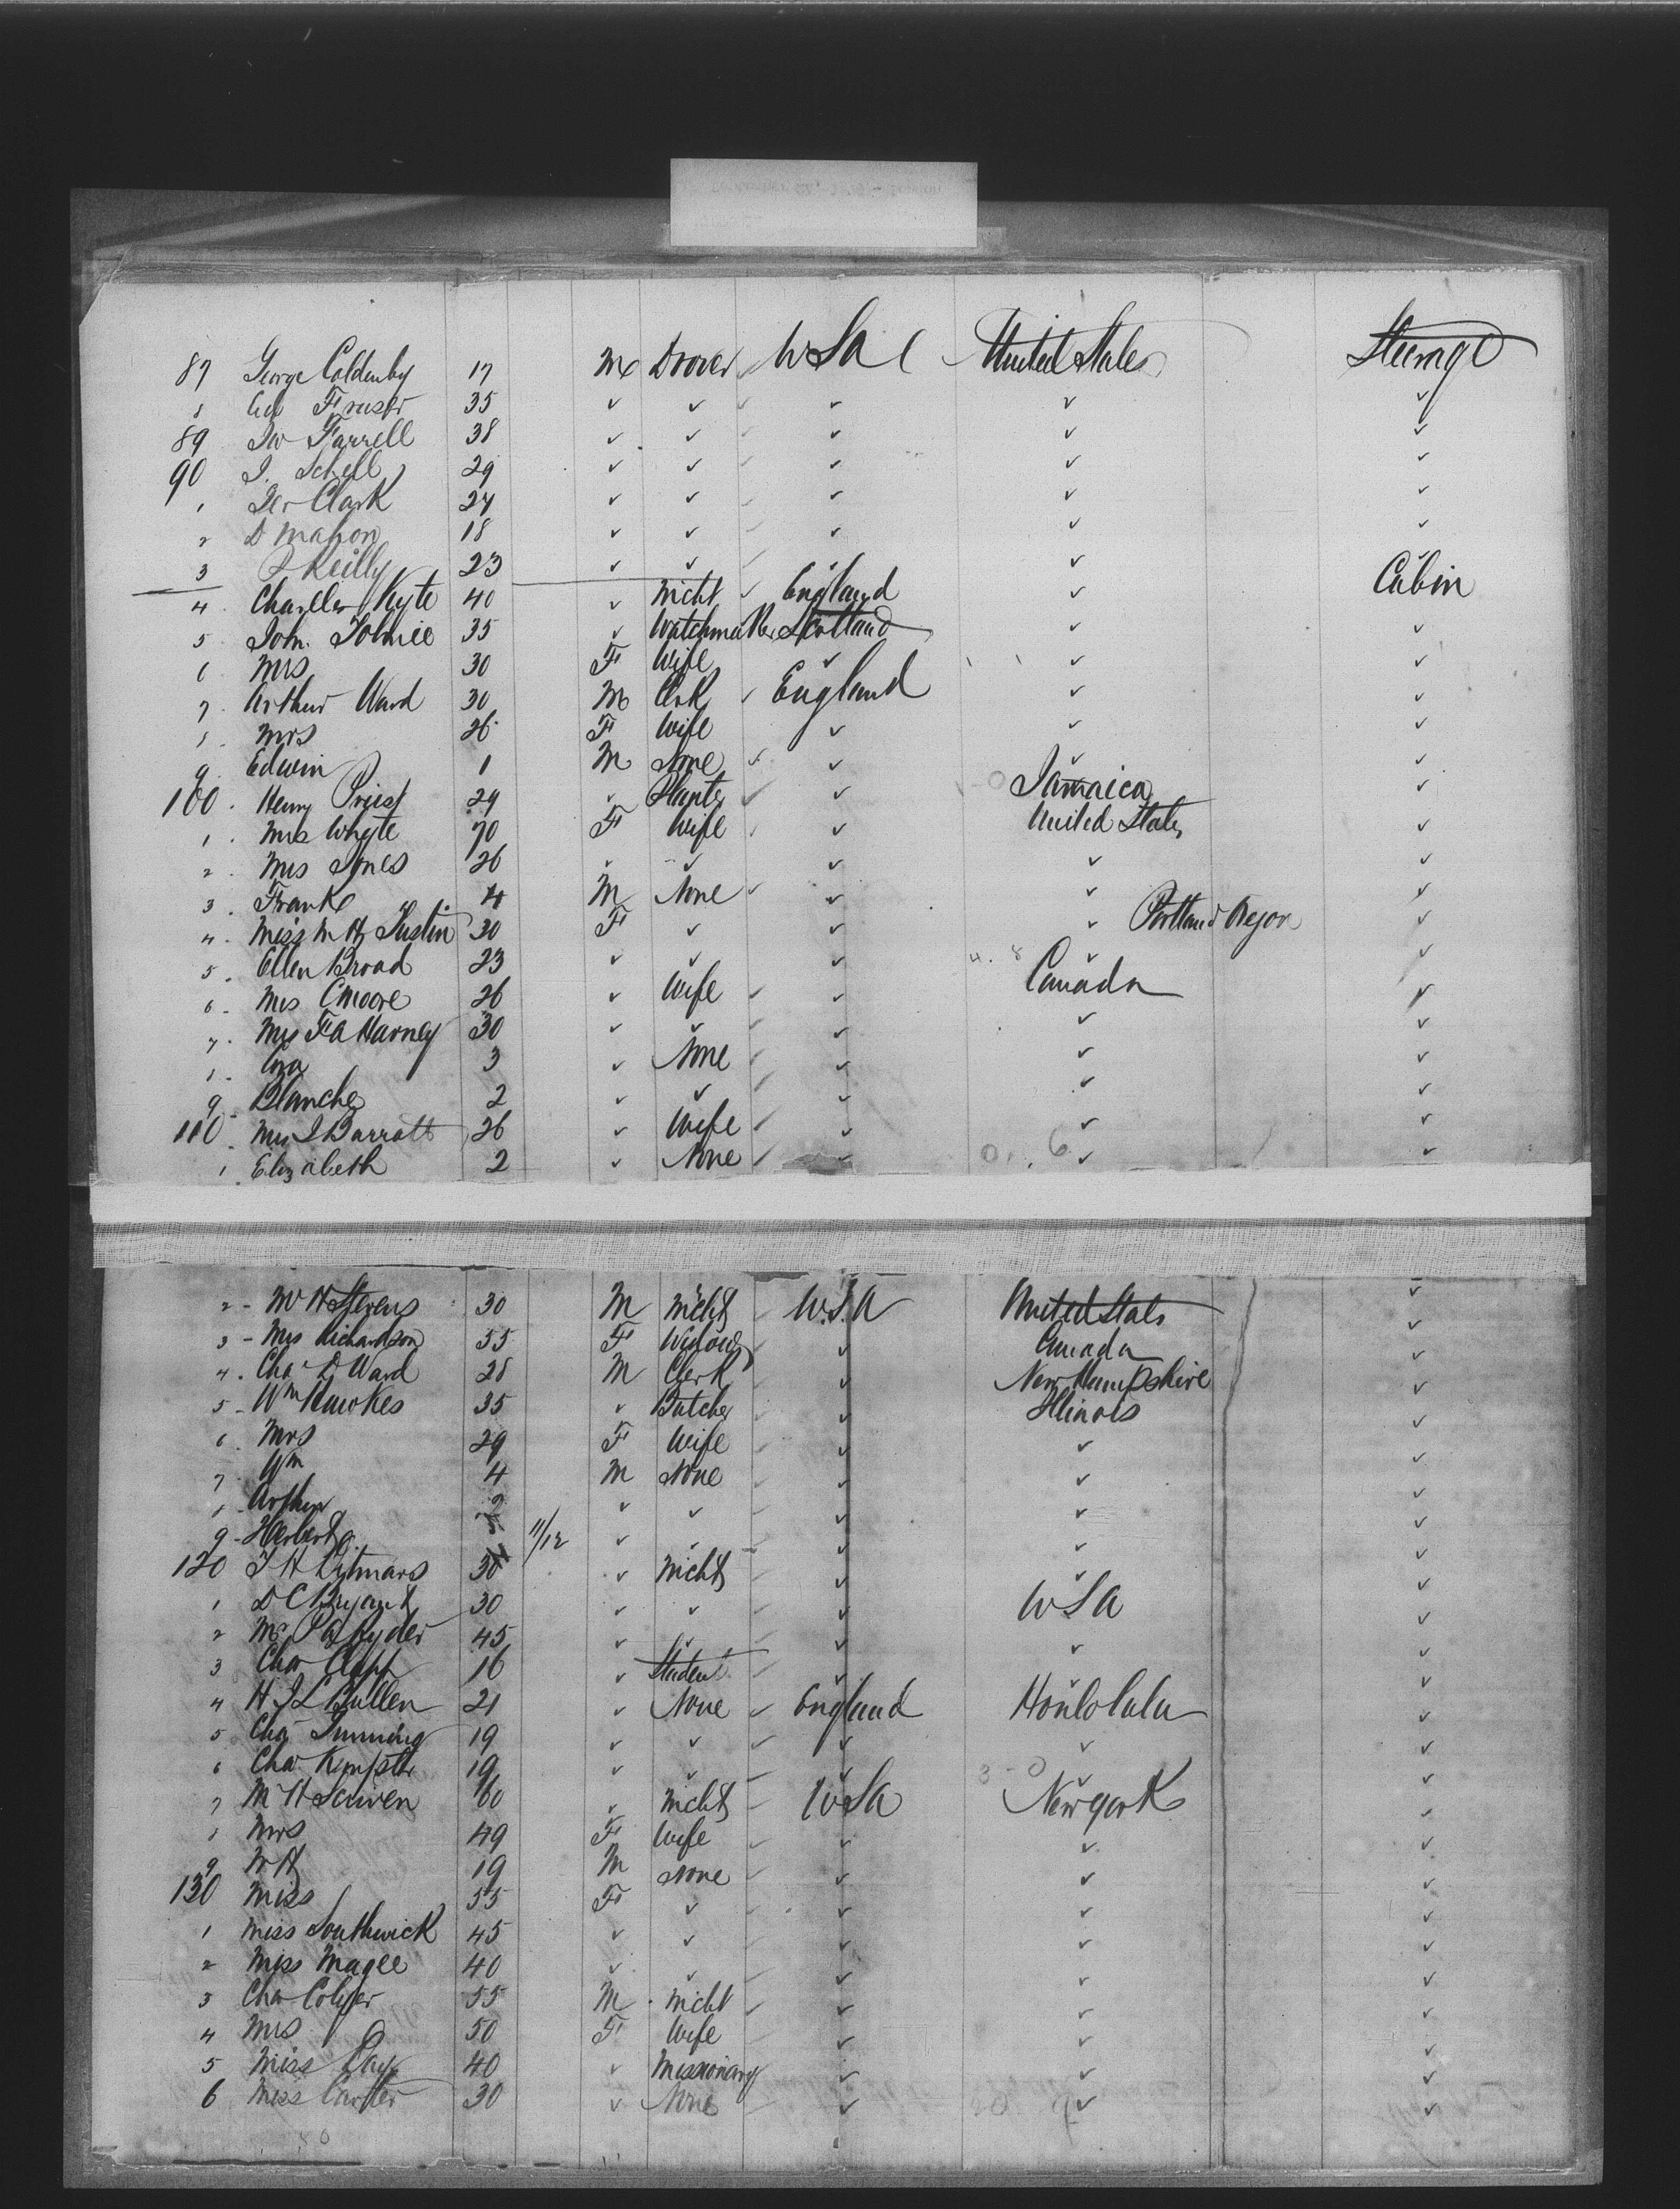 87 George Coldenby 17 M Drover U S A United States Steerage
8 Geo Fraser 35 ✓ ✓ ✓ ✓ ✓
89 Farrell 38 ✓ ✓ ✓ ✓ ✓
90 J. Schell 29 ✓ ✓ ✓ ✓ ✓
1 Clark 24 ✓ ✓ ✓ ✓ ✓
2 D Mahon 18 ✓ ✓ ✓ ✓ ✓
3 P Reilly 23 ✓ ✓ ✓ ✓
4 Charles Kyte 40 ✓ Mcht England ✓ Cabin
5 John Tolmie 35 ✓ Watchmaker Scotland ✓ ✓
6 Mrs 30 F Wife ✓ ✓ ✓
7 Arthur Ward 30 M Clrk England ✓ ✓
8 Mrs 26 F Wife ✓ ✓ ✓
9 Edwin 1 M None ✓ ✓ ✓
100 Henry Priest 29 ✓ Planter ✓ Jamaica ✓
1 Mrs Whyte 70 F Wife ✓ United States ✓
2 Mrs Jones 26 ✓ ✓ ✓ ✓ ✓
3 Frank 4 M None ✓ ✓ ✓
4 Miss M H Justin 30 F ✓ ✓ ✓ Portland Oregon ✓
5 Ellen Broad 23 ✓ ✓ ✓ ✓ ✓
6 Mrs C Moore 26 ✓ Wife ✓ Canada ✓
7 Mrs F A Harney 30 ✓ ✓ ✓ ✓ ✓
8 3 ✓ None ✓ ✓ ✓
9 Blanche 2 ✓ ✓ ✓ ✓ ✓
110 Mrs J Barratt 26 ✓ Wife ✓ ✓ ✓
1 Elizabeth 2 ✓ None ✓ ✓ ✓
2 W H Stevens 30 M Mcht U.S.A United States ✓
3 Mrs Richardson 35 F Widow ✓ Canada ✓
4 Chas D Ward 28 M Clerk ✓ New Hampshire ✓
5 Wm Hawkes 35 ✓ Butcher ✓ Illinois ✓
6 Mrs 29 F Wife ✓ ✓ ✓
7 Wm 4 M None ✓ ✓ ✓
8 Arthur 2 ✓ ✓ ✓ ✓ ✓
9 Herbert G. 11/12 ✓ ✓ ✓ ✓ ✓
120 J H 30 ✓ Mcht ✓ ✓ ✓
1 D C Bryant 30 ✓ ✓ ✓ U S A ✓
2 Mr Ryder 45 ✓ ✓ ✓ ✓ ✓
3 Chas Clapp 16 ✓ Student ✓ ✓ ✓
4 H J L Bullen 21 ✓ None England Honlolulu ✓
5 Chas 19 ✓ ✓ ✓ ✓ ✓
6 Chas 19 ✓ ✓ ✓ ✓ ✓
7 M H Scriven 60 ✓ Mcht U S a New york ✓
8 Mrs 49 F Wife ✓ ✓ ✓
9 W H 19 M None ✓ ✓ ✓
130 Miss 55 F ✓ ✓ ✓ ✓
1 Miss Southwick 45 ✓ ✓ ✓ ✓ ✓
2 Miss Magee 40 ✓ ✓ ✓ ✓ ✓
3 Chas Colyer 55 M Mcht ✓ ✓ ✓
4 Mrs 50 F Wife ✓ ✓ ✓
5 Miss Day 40 ✓ Missionary ✓ ✓ ✓
6 Miss Carter 30 ✓ None ✓ ✓ ✓